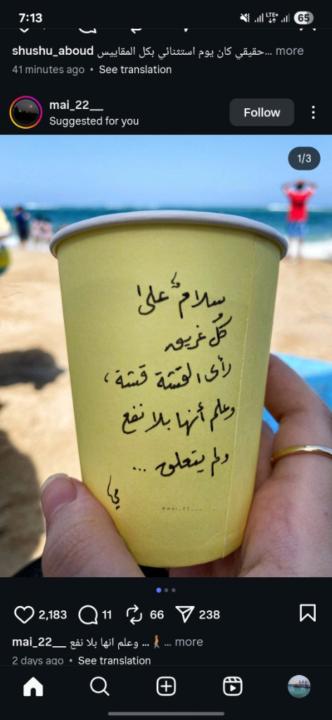 7:13
65
shushu_aboud حقيقي كان يوم استثنائي بكل المقاييس... more
41 minutes ago • See translation
mai_22__
Suggested for you
Follow
1/3
سلامٌ على
كُل غريق
رأى القشة قشة،
وعلم أنها بلا نفع
ولم يتعلق ...
مي
2,183
11
66
238
mai_22__ وعلم انها بلا نفع ...🚶... more
2 days ago • See translation